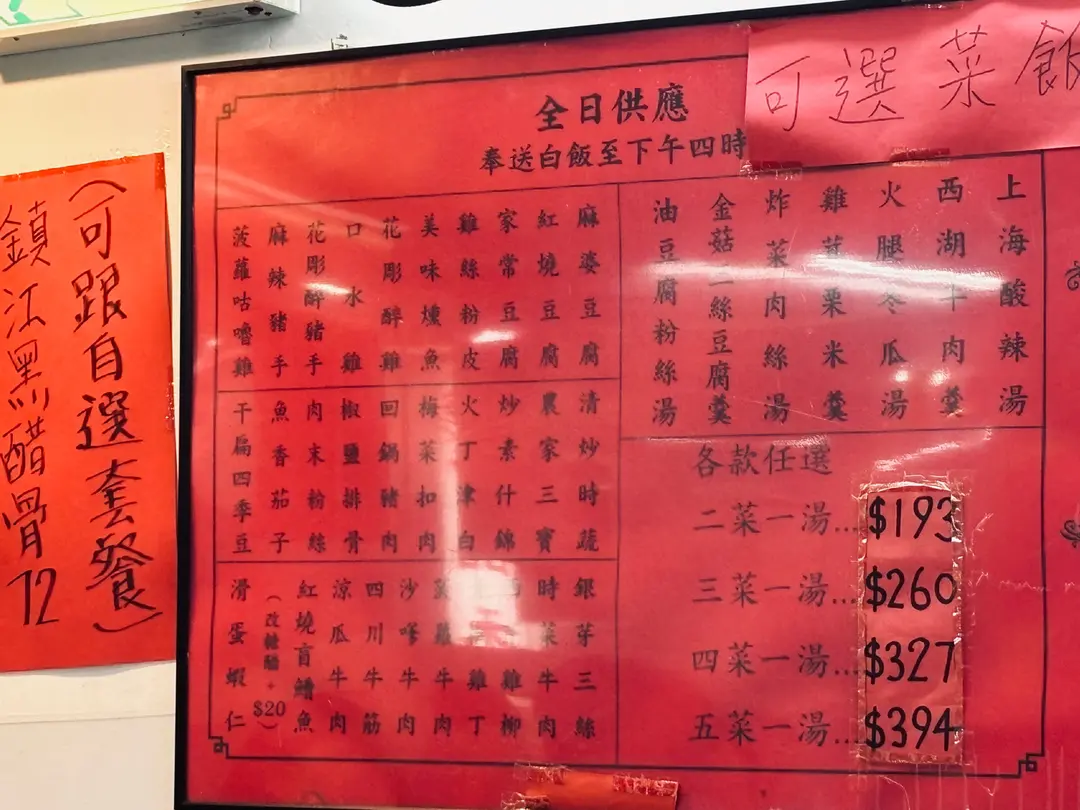 可選菜飯
全日供應
奉送白飯至下午四時
上海酸辣湯
西湖牛肉羹
火腿冬瓜湯
雞茸粟米羹
炸菜肉絲湯
金菇二絲豆腐羹
油豆腐粉絲湯
麻婆豆腐
紅燒豆腐
家常豆腐
雞絲粉皮
美味燻魚
花彫醉雞
口水雞
花彫醉豬手
麻辣豬手
菠蘿咕嚕雞
清炒時蔬
農家三寶
炒素什錦
火丁津白
梅菜扣肉
回鍋豬肉
椒鹽排骨
肉末粉絲
魚香茄子
干扁四季豆
銀芽三絲
時菜牛肉
雞柳
雞丁
牛肉
沙嗲牛肉
四川牛筋
涼瓜牛肉
紅燒盲鰽魚
(改糖醋+$20)
滑蛋蝦仁
各款任選
二菜一湯...$193
三菜一湯...$260
四菜一湯...$327
五菜一湯...$394
(可跟自選套餐)
鎮江黑醋骨72